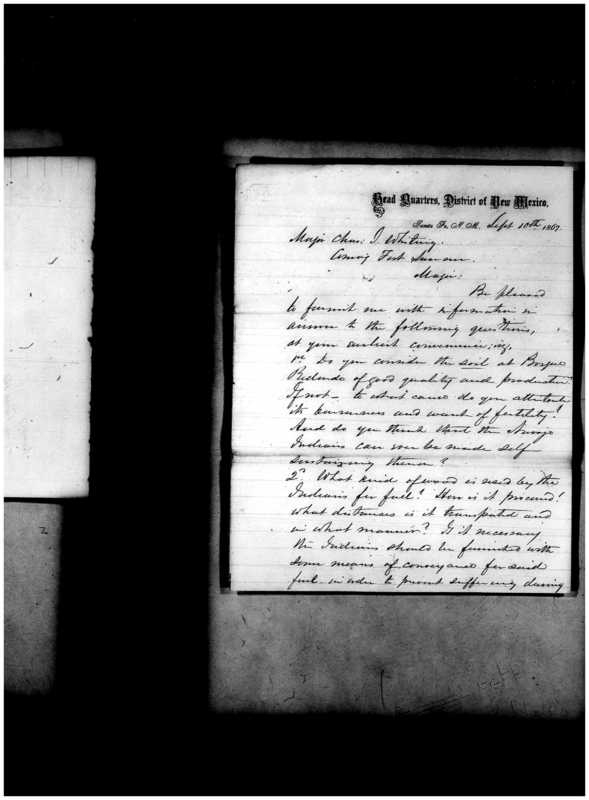 Head Quarters, District of New Mexico,
Santa Fe, N. M., Sept 10th 1867.
Major Chas. J. Whiting.
Comdg Fort Sumner.
Major:
Be pleased
to furnish me with information in
answer to the following questions,
at your earliest convenience; viz,
1st Do you consider the soil at Bosque
Redondo of good quality and productive?
If not - to what cause do you attribute
its barrenness and want of fertility?
And do you think that the Navajo
Indians can ever be made self
sustaining thereon?
2d What kind of wood is used by the
Indians for fuel? How is it procured?
what distances is it transported and
in what manner? Is it necessary
the Indians should be furnished with
some means of conveyance for said
fuel - in order to prevent suffering during